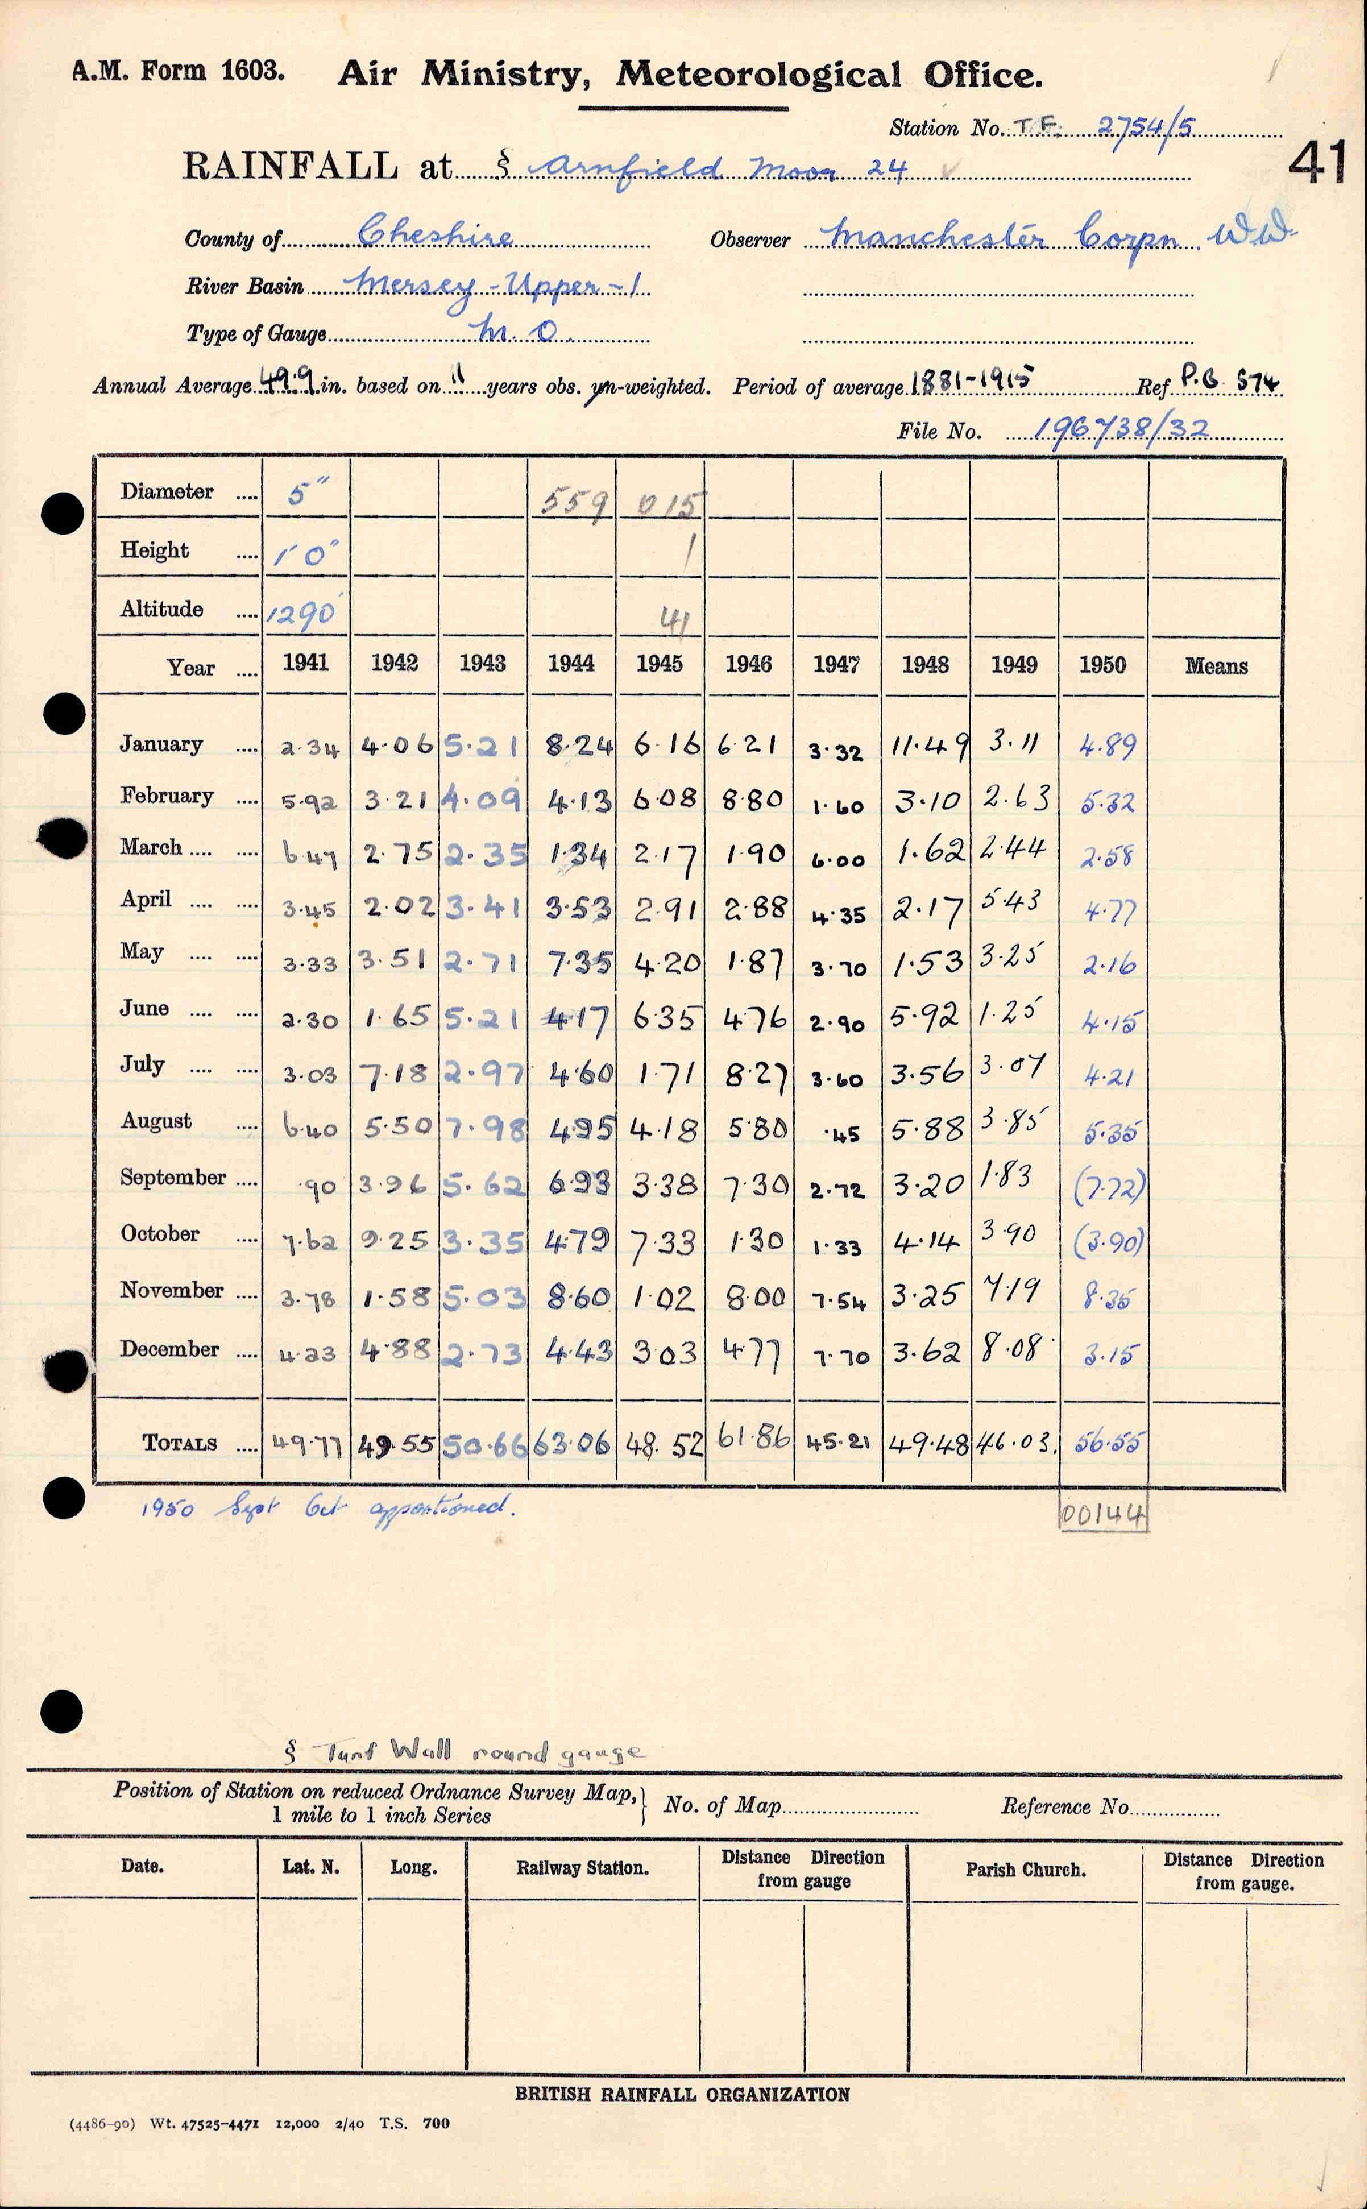 A.M. Form 1603. Air Ministry, Meteorological Office.
Station No. T.F. 2754/5
41
RAINFALL at § Arnfield Moor 24
County of Cheshire Observer Manchester Corpn. WW
River Basin Mersey - Upper - 1
Type of Gauge M.O.
Annual Average 49.9 in. based on 11 years obs. un-weighted. Period of average 1881-1915 Ref P.B. S74
File No. 196738/32
Diameter .... 5" 559 015
Height .... 1' 0" 1
Altitude .... 1290' 41
Year .... 1941 1942 1943 1944 1945 1946 1947 1948 1949 1950 Means
January .... 2.34 4.06 5.21 8.24 6.16 6.21 3.32 11.49 3.11 4.89
February .... 5.92 3.21 4.09 4.13 6.08 8.80 1.60 3.10 2.63 5.32
March .... .... 6.47 2.75 2.35 1.34 2.17 1.90 6.00 1.62 2.44 2.58
April .... .... 3.45 2.02 3.41 3.53 2.91 2.88 4.35 2.17 5.43 4.77
May .... .... 3.33 3.51 2.71 7.35 4.20 1.87 3.70 1.53 3.25 2.16
June .... .... 2.30 1.65 5.21 4.17 6.35 4.76 2.90 5.92 1.25 4.15
July .... .... 3.03 7.18 2.97 4.60 1.71 8.27 3.60 3.56 3.07 4.21
August .... 6.40 5.50 7.98 4.95 4.18 5.80 .45 5.88 3.85 5.35
September .... .90 3.96 5.62 6.93 3.38 7.30 2.72 3.20 1.83 (7.72)
October .... 7.62 9.25 3.35 4.79 7.33 1.30 1.33 4.14 3.90 (3.90)
November .... 3.78 1.58 5.03 8.60 1.02 8.00 7.54 3.25 7.19 8.35
December .... 4.23 4.88 2.73 4.43 3.03 4.77 7.70 3.62 8.08 3.15
TOTALS .... 49.77 49.55 50.66 63.06 48.52 61.86 45.21 49.48 46.03 56.55
1950 Sept Oct apportioned.
00144
§ Turf Wall round gauge
Position of Station on reduced Ordnance Survey Map, 1 mile to 1 inch Series } No. of Map Reference No.
Date. Lat. N. Long. Railway Station. Distance Direction from gauge Parish Church. Distance Direction from gauge.
BRITISH RAINFALL ORGANIZATION
(4486-90) Wt. 47525-4471 12,000 2/40 T.S. 700